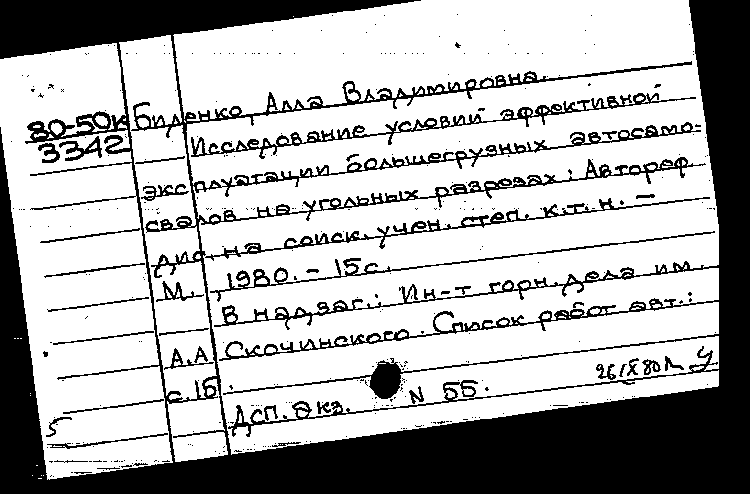 80-50к
3342
Биденко, Алла Владимировна.
Исследование условий эффективной
эксплуатации большегрузных автосамо-
свалов на угольных разрезах: Автореф.
дис. на соиск. учен. степ. к.т.н. —
М., 1980. - 15с.
В надзаг.: Ин-т горн. дела им.
А.А. Скочинского. Список работ авт.:
с.15.
Дсп. Экз. N 55.
5